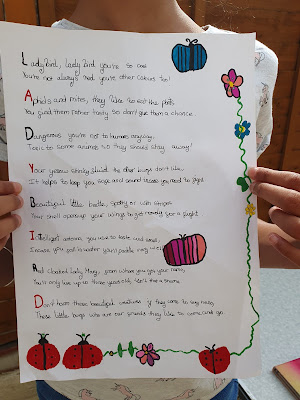 Ladybird, Ladybird you're so cool
You're not always red you're other colours too!
Aphids and mites, they like to eat the plants
You find them rather tasty so don't give them a chance.
Dangerous you're not to humans anyway,
Toxic to some animals so they should stay away!
Your yellow stinky fluid the other bugs don't like,
It helps to keep you safe and sound incase you need to fight
Beautiful little beetle, spotty or with stripes
Your shell opens up your wings to get ready for a flight
Intelligent antenna, you use to taste and smell,
Incase you fall in water you'll paddle very well
Red cloaked lady Mary, from where you got your name,
You only live up to three years old, isn't that a shame
Don't harm these beautiful creatures if they come to say hello,
These little bugs who are our friends they like to come and go.